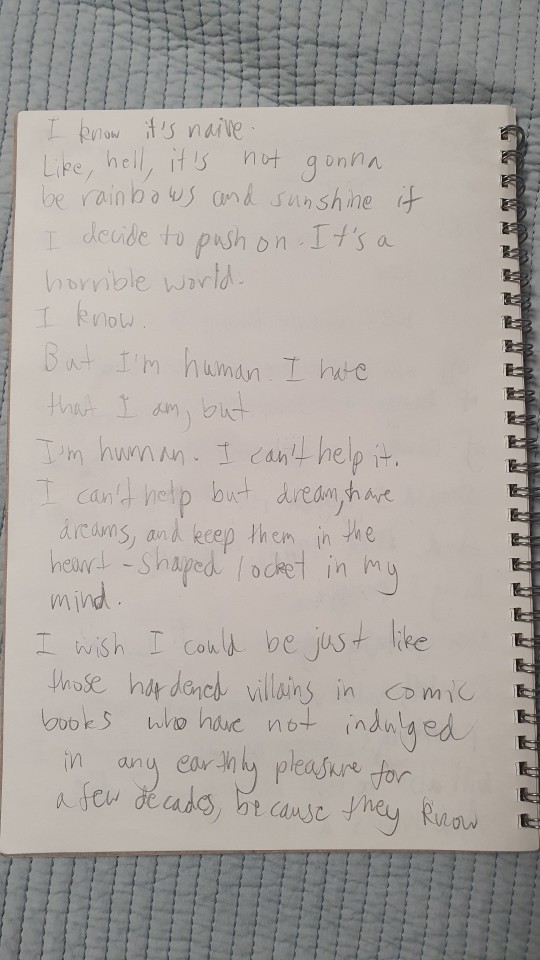 I know it's naive.
Like, hell, it's not gonna
be rainbows and sunshine if
I decide to push on. It's a
horrible world.
I know.
But I'm human. I hate
that I am, but
I'm human. I can't help it.
I can't help but dream, have
dreams, and keep them in the
heart-shaped locket in my
mind.
I wish I could be just like
those hardened villains in comic
books who have not indulged
in any earthly pleasure for
a few decades, because they know